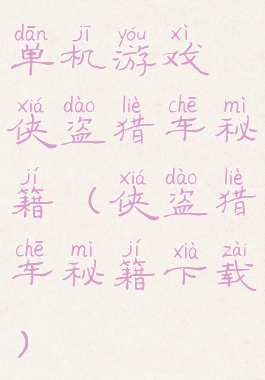 dān jī yóu xì
单机游戏
xiá dào liè chē mì
侠盗猎车秘
jí xiá dào liè
籍（侠盗猎
chē mì jí xià zài
车秘籍下载
）